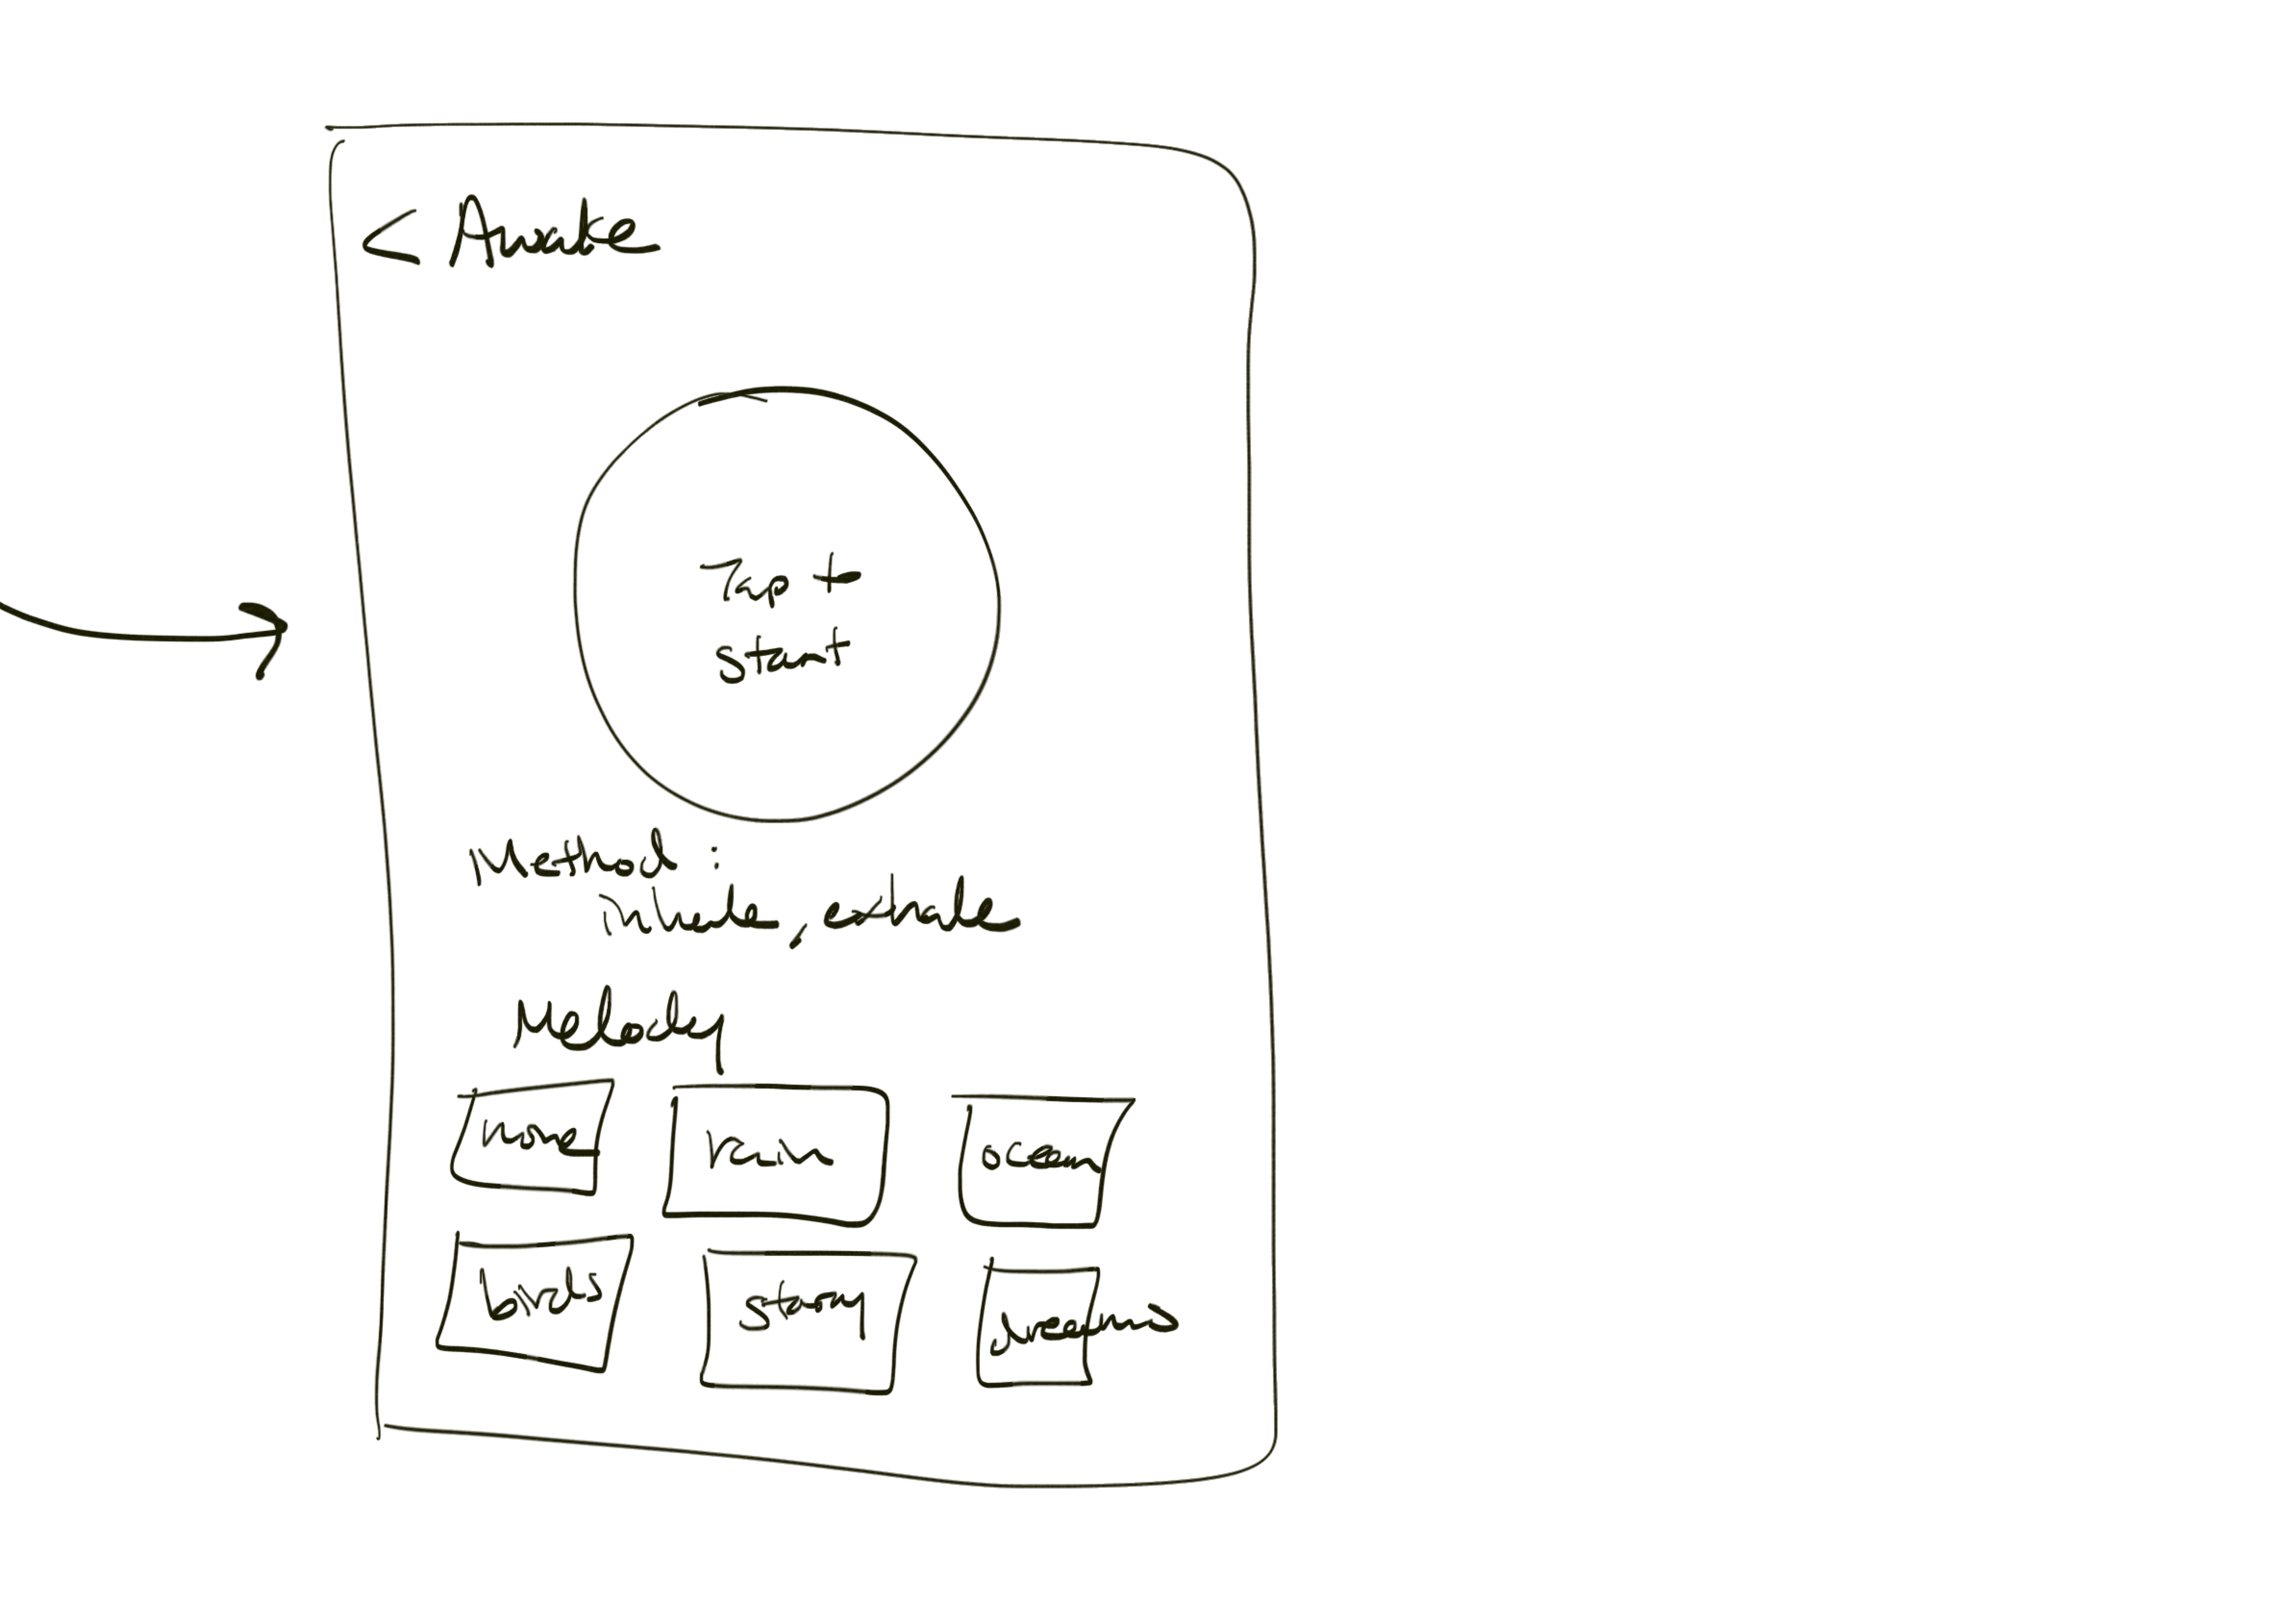 < Awake
Tap to
start
Method :
inhale, exhale
Melody
none rain ocean
birds starry dreams